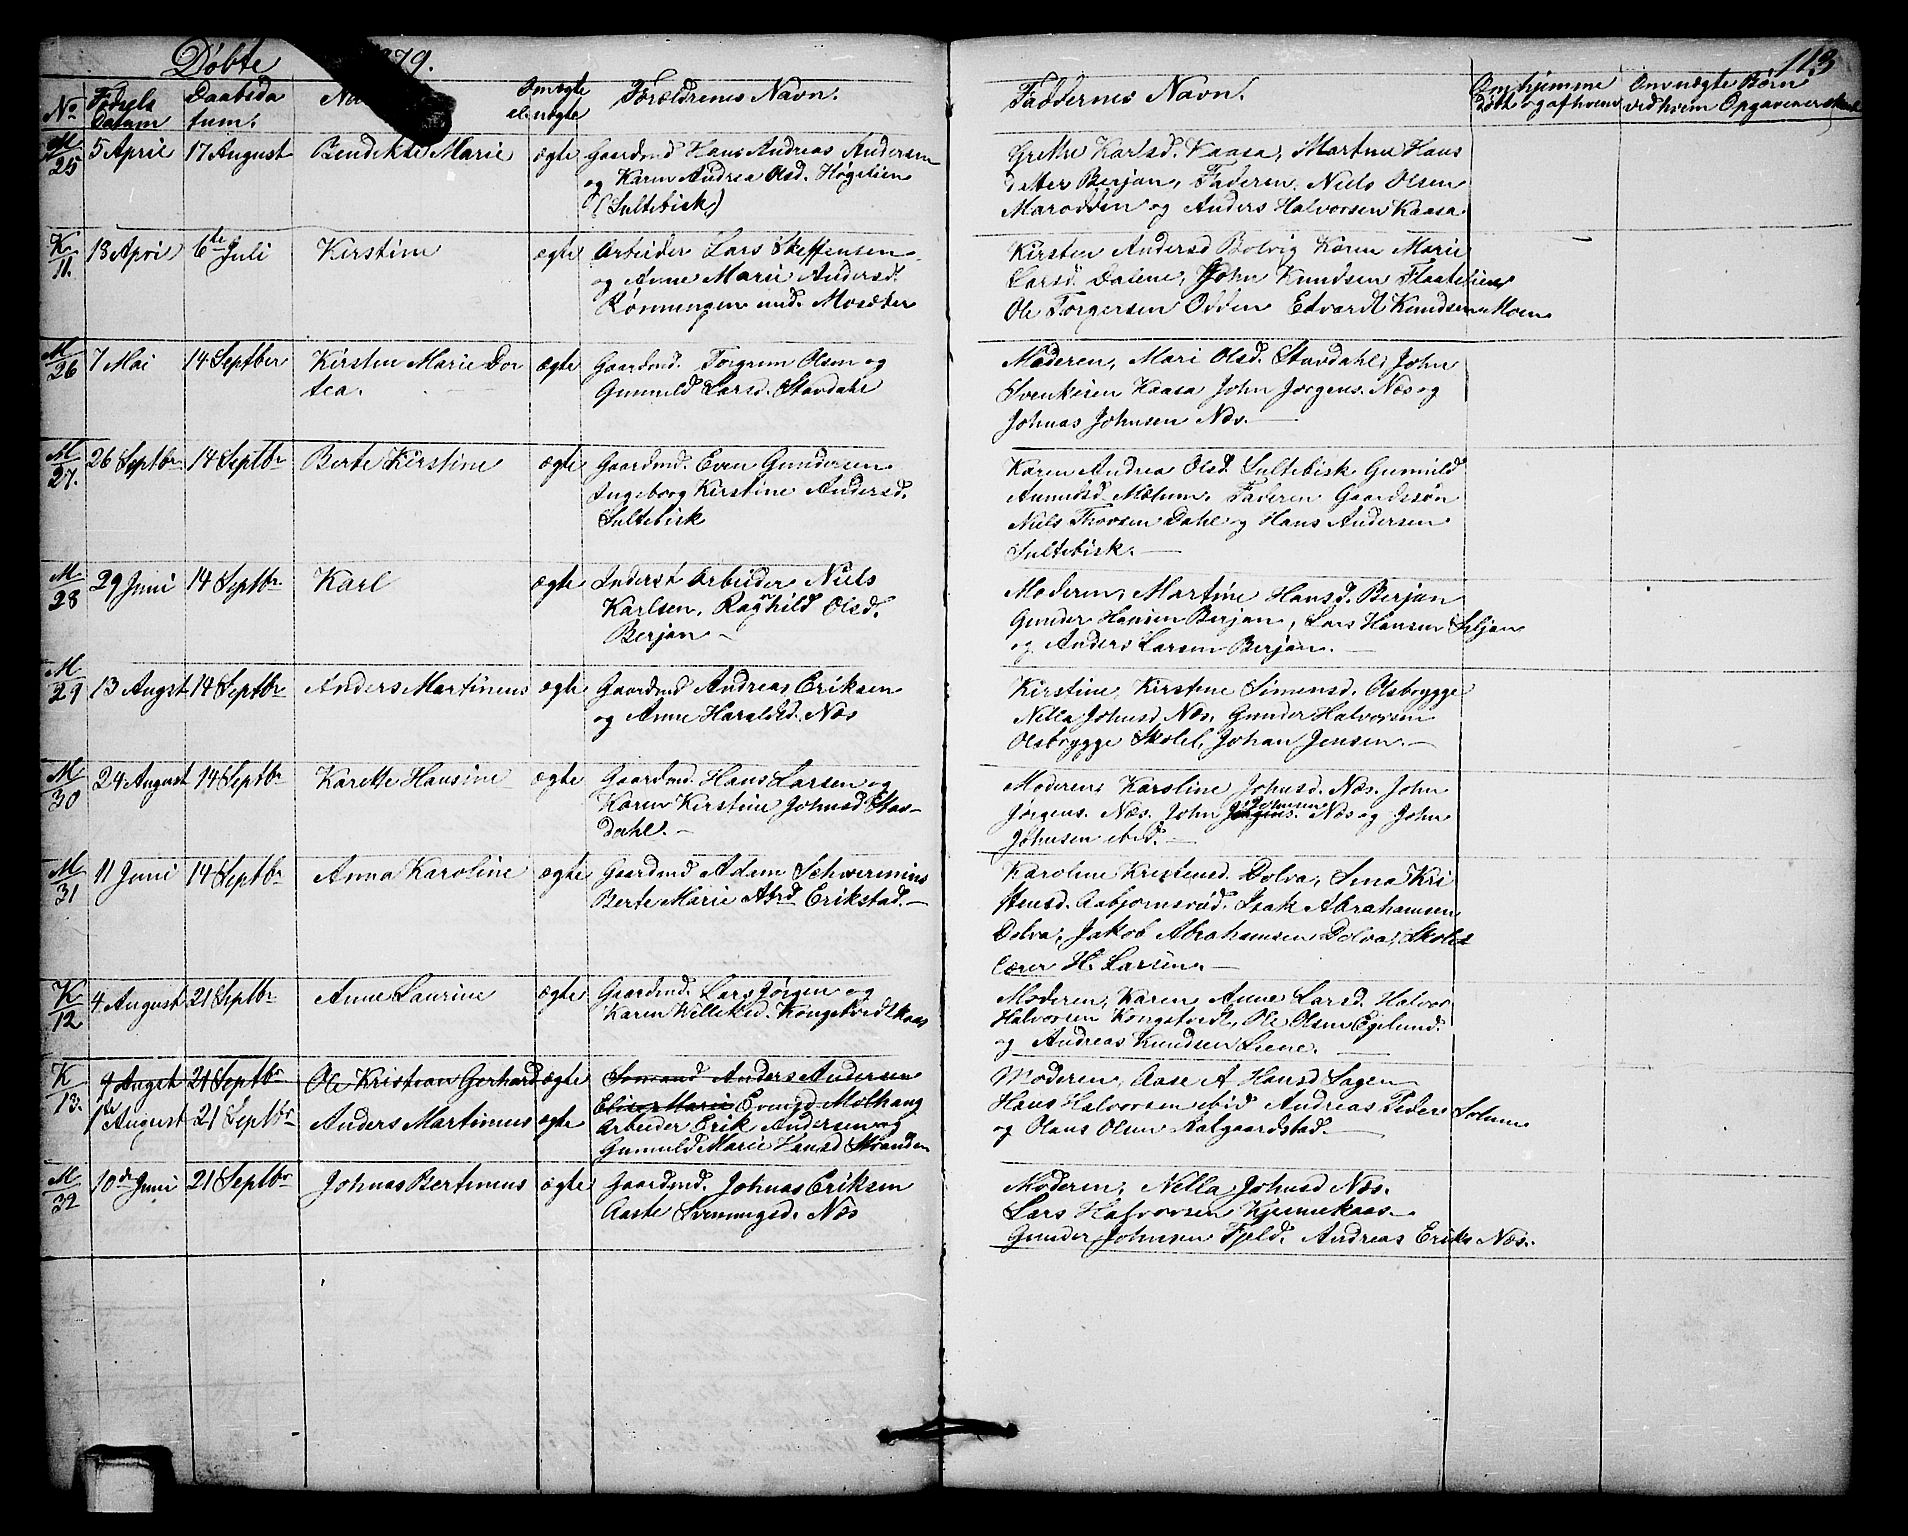 Döbte 79.
113
No Fødsels Datum Daabsda tum. Na Om ægte el. uægte Forældrenes Navn. Faddernes Navn. Om hjemme døbt og af hvem Om uægte Børn ved hvem Opgaven er skeet
M 25 5 April 17 August Bendikte Marie ægte Gaardmd Hans Andreas Andersen
og Karen Andrea Olsd. Høgelien
(Sultebisk)
Grethe Karlsd. Kaasa, Martine Hans
datter Berjan, Faderen. Niels Olsen
Marodden og Anders Halvorsen Kaasa
K 11. 13 April 6te Juli Kirstine ægte Arbeider Lars Steffensen
og Anne Marie Andersd.
Rönningen und. Mosæter
Kirsten Andersd Bolvig Karen Marie
Larsd. Dalene, John Knudsen Flaatelien
Ole Torgersen Odden Edvardt Knudsen Moen
M 26 7 Mai 14 Septber Kirsten Marie Dor
tea. ægte Gaardmd. Torgrim Olsen og
Gunnild Larsd. Stavdahl
Moderen, Mari Olsd. Stavdahl, John
Svenkesen Kaasa John Jørgens. Næs og
Johnas Johnsen Næs.
M 27. 26 Septbr. 14 Septbr Berte Kirstine ægte Gaardmd. Even Gundersen
Ingeborg Kirstine Andersd.
Sultebisk
Karen Andrea Olsd. Sultebisk Gunnild
Amundsd. Mælum. Faderen Gaardssøn
Niels Thorsen Dahl og Hans Andersen
Sultebisk.
M. 28 29 Juni 14 Septbr. Karl ægte Inderst Arbeider Niels
Karlsen, Ragnhild Olsd.
Berjan
Moderen, Martine Hansd. Berjan
Gunder Hansen Berjan, Lars Hansen Seljan
og Anders Larsen Berjan.
M 29 13 Augst 14 Septbr Anders Martinius ægte Gaardmd Andreas Eriksen
og Anne Haraldsd. Næs
Kirstine Kirstene Simensd. Olsbrygge
Nella Johnsd Næs, Gunder Halvorsen
Olsbrygge Skolel. Johan Jensen.
M 30 24 August 14 Septbr Karette Hansine ægte Gaardmd. Hans Larsen og
Karen Kirstine Johnsd Stav-
dahl.
Moderen Karoline Johnsd. Næs. John
Jörgens. Næs. John Jörgens. Johnsen Næs og John
Johnsen ibid.
M 31 11 Juni 14 Septbr Anna Karoline ægte Gaardmd Adam Schwerinius
Berte Marie Abrd Erikstad.
Karoline Kristensd. Dolva, Sina Kri
stensd. Aabjornsrud. Isak Abrahamsen
Dolva, Jakob Abrahamsen Dolva, Skole
lærer H. Larsen.
K 12 4 August 21 Septbr. Anne Laurine ægte Gaardmd. Lars Jörgen og
Karen Kongetvedtkaas
Moderen, Karen Anne Larsd. Halvor
Halvorsen Kongstvedt, Ole Olsen Egelund.
og Andreas Knudsen Liene.
K 13. 4 Augst 21 Septbr Ole Kristian Gerhard ægte Sömand Anders Andersen
Eline Marie Evensd Molhaug
1te August 21 Septbr Anders Martinus ægte Arbeider Erik Andersen og
Gunnild Marie Hansd Stranden
Moderen, Aase A Hansd Sagen
Hans Halvorsen ibid Andreas Peders Solum
og Olaus Olsen Aalgaardstad.
M 32 10de Juni 21 Septbr Johnas Bertinius ægte Gaardmd. Johnas Eriksen
Aaste Sveinungsd. Næs
Moderen, Nella Johnsd Næs.
Lars Halvorsen Hjennekaas.
Gunder Johnsen Fjeld. Andreas Eriks Næs.